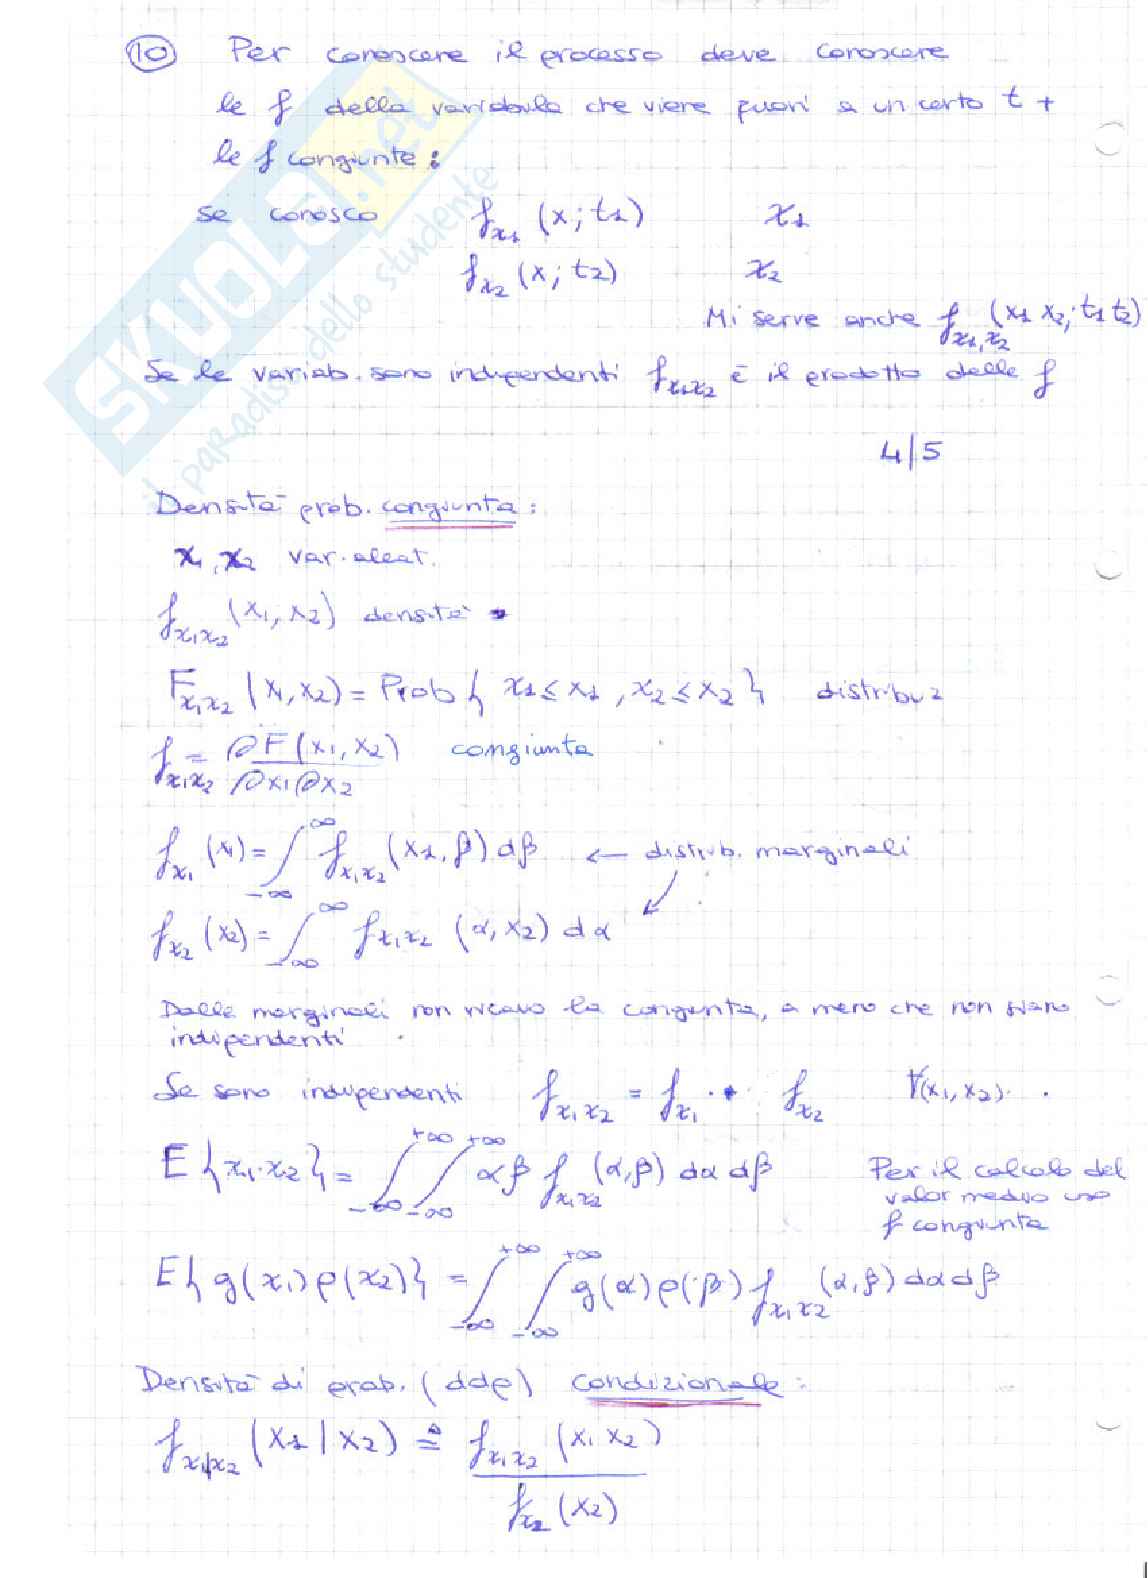 10 Per conoscere il processo deve conoscere
le f della variabile che viene fuori a un certo t +
le f congiunte :
se conosco f_x1 (x ; t1) x1
f_x2 (x ; t2) x2
Mi serve anche f_x1,x2 (x1 x2 ; t1 t2)
Se le variab. sono indipendenti f_x1x2 è il prodotto delle f
4/5
Densità prob. congiunta :
x1, x2 var. aleat.
f_x1x2 (x1, x2) densità
F_x1x2 (x1, x2) = Prob { x1 ≤ x1 , x2 ≤ x2 } distribuz
f_x1x2 = ∂F (x1, x2) / ∂x1 ∂x2 congiunta
f_x1 (x1) = ∫_-∞^∞ f_x1x2 (x1, β) dβ ← distrib. marginali
f_x2 (x2) = ∫_-∞^∞ f_x1x2 (α, x2) dα
Dalle marginali non ricavo la congiunta, a meno che non siano
indipendenti
Se sono indipendenti f_x1x2 = f_x1 · f_x2 ∀(x1, x2)
E { x1 · x2 } = ∫_-∞^+∞ ∫_-∞^+∞ αβ f_x1x2 (α, β) dα dβ Per il calcolo del
valor medio uso
f congiunta
E { g(x1) p(x2) } = ∫_-∞^+∞ ∫_-∞^+∞ g(α) p(β) f_x1x2 (α, β) dα dβ
Densità di prob. (ddp) condizionale :
f_x1|x2 (x1 | x2) ≜ f_x1x2 (x1 x2) / f_x2 (x2)
SKUOLA.net
il paradiso dello studente